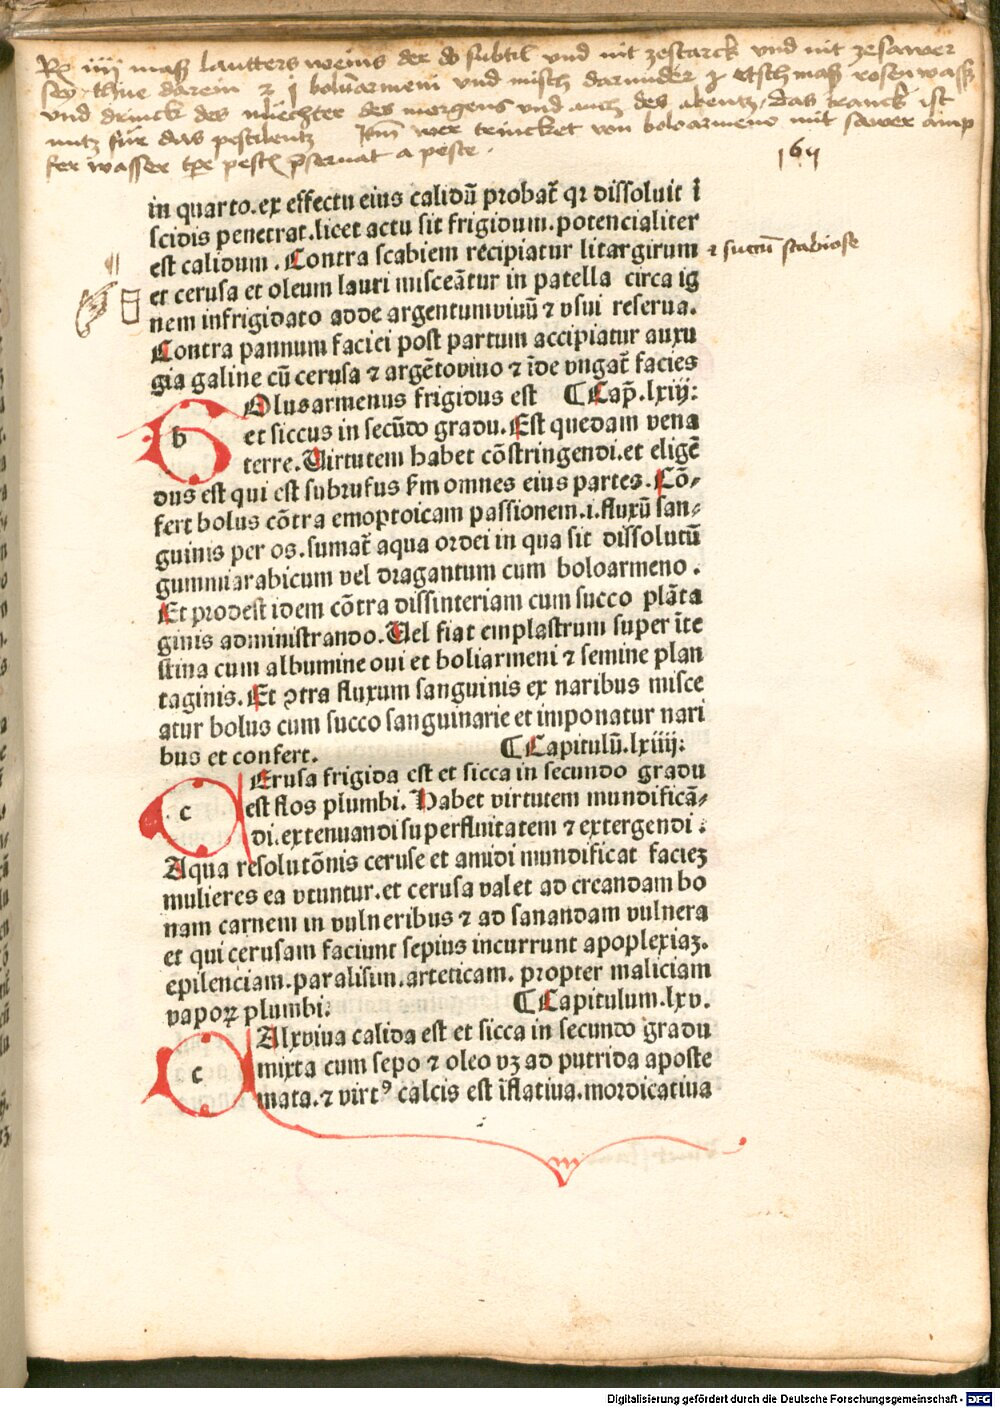 Rx iiij maß lautters weins der do subtil und nit zestarck und nit zesawer
sey thue darein ʒ j boliarmeni und misch darunder j etschmaß rosenwaßß
und drinck des nüechter des morgens und auch des abentz, das tranck ist
nutz für das pestilentz Itm wer trincket von boloarmeno mit sawer amp
fer wasser tpe pestꝭ pseruat a peste.
in quarto.ex effectu eius calidū probat̄ qꝛ dissoluit ī
scidis penetrat.licet actu sit frigidum.potencialiter
est calidum. Contra scabiem recipiatur litargirum
⁊ succū scabiose
et cerusa et oleum lauri misceātur in patella circa ig
nem infrigidato adde argentumviuū ⁊ vsui reserua.
Contra pannum faciei post partum accipiatur auxu
gia galine cū cerusa ⁊ argētoviuo ⁊ īde vngat̄ facies
b Olusarmenus frigidus est ¶ Cap̄. lxiij:
et siccus in secūdo gradu. Est quedam vena
terre. Virtutem habet cōstringendi.et eligē
dus est qui est subrufus ẜm omnes eius partes. Cō⸗
fert bolus cōtra emoptoicam passionem.i.fluxū san⸗
guinis per os.sumat̄ aqua ordei in qua sit dissolutū
gummiarabicum vel dragantum cum boloarmeno .
Et prodest idem cōtra dissinteriam cum succo plāta
ginis administrando. Vel fiat emplastrum super īte
stina cum albumine oui et boliarmeni ⁊ semine plan
taginis. Et ꝯtra fluxum sanguinis ex naribus misce
atur bolus cum succo sanguinarie et imponatur nari
bus et confert. ¶ Capitulū.lxiiij:
c Erusa frigida est et sicca in secundo gradu
est flos plumbi. Habet virtutem mundificā⸗
di.extenuandi superfluitatem ⁊ extergendi :
Aqua resolutōnis ceruse et amidi mundificat facieꝫ
mulieres ea vtuntur.et cerusa valet ad creandam bo
nam carnem in vulneribus ⁊ ad sanandam vulnera
et qui cerusam faciunt sepius incurrunt apoplexiaꝫ.
epilenciam.paralisim.arteticam. propter maliciam
vapoꝝ plumbi: ¶ Capitulum.lxv.
c Alxviua calida est et sicca in secundo gradu
mixta cum sepo ⁊ oleo vꝫ ad putrida aposte
mata.⁊ virtꝰ calcis est īflatiua.mordicatiua
Digitalisierung gefördert durch die Deutsche Forschungsgemeinschaft - DFG